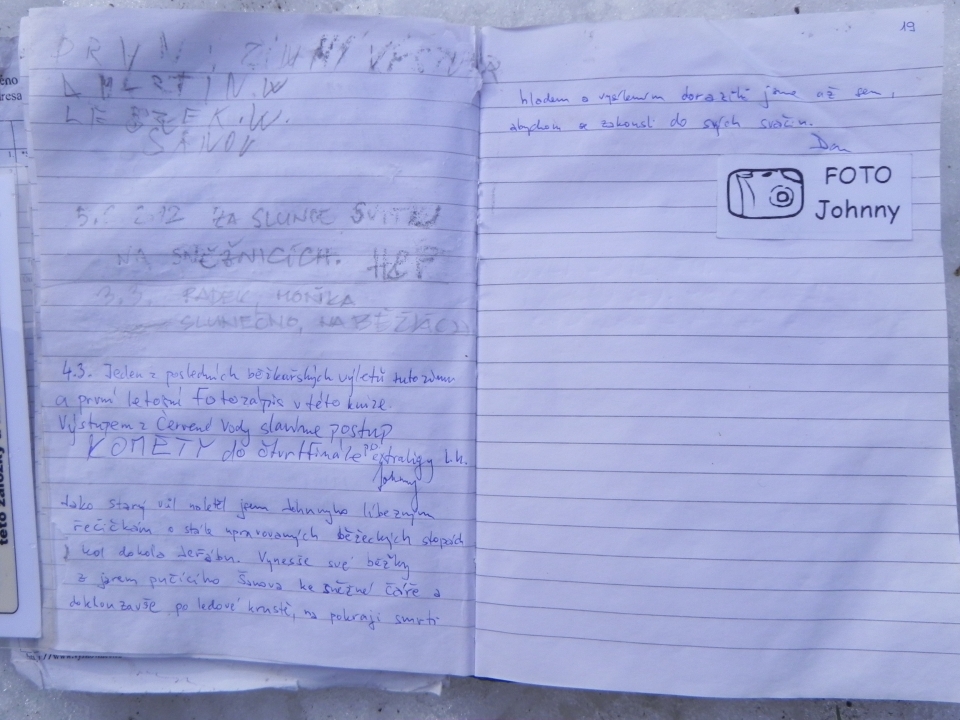 PRVNÍ ZIMNÍ
MARTIN.W
LESZEK.W.
SANOV
ZA SLUNCE SVITU
NA SNĚŽNICÍCH. H&F
3.3. RADEK, MONIKA
SLUNEČNO, NA BĚŽKÁCH
4.3. Jeden z posledních běžkařských výletů tuto zimu
a první letošní Fotozápis v této knize.
Výstupem z Červené Vody slavíme postup
KOMETY do čtvrtfinále extraligy LH.
Johny
Jako starý vůl naletěl jsem Johnnyho líbezným
řečičkám o stále upravovaných běžeckých stopách
kol dokola Jeřábu. Vynesše své běžky
z jarem pučícího Šanova ke sněžné čáře a
doklouzavše po ledové krustě, na pokraji smrti
19
hladem a vysílením dorazili jsme až sem,
abychom se zakousli do svých svačin.
Dan
FOTO
Johnny
této záložky